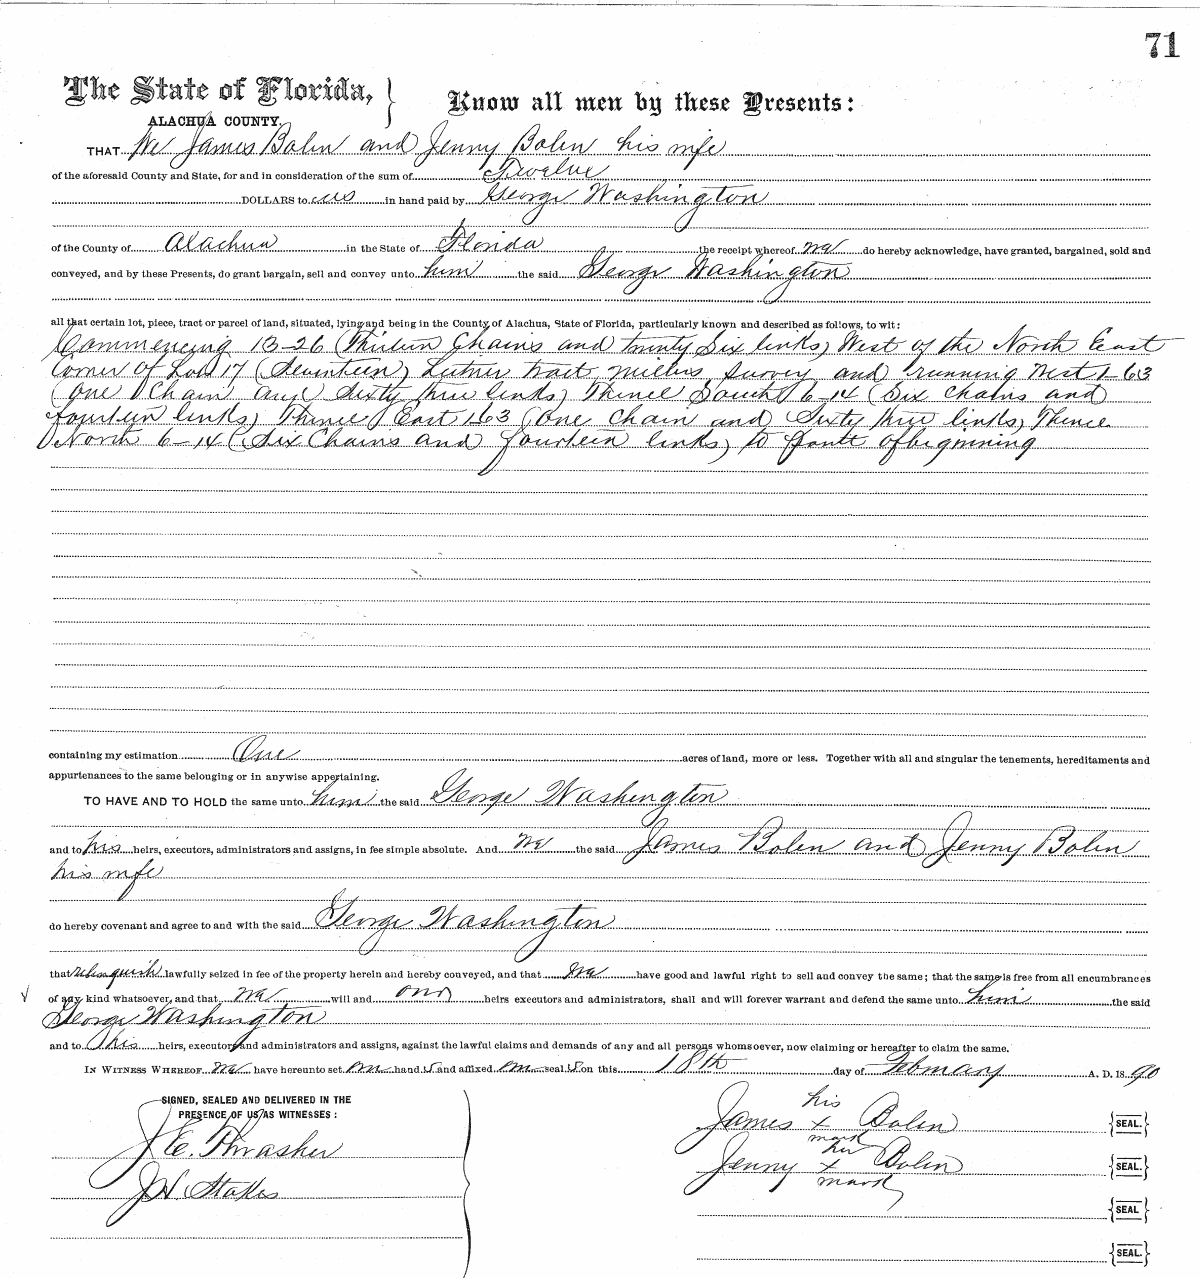 71
The State of Florida, } Know all men by these Presents:
ALACHUA COUNTY
THAT We James Bolen and Jenny Bolen his wife
of the aforesaid County and State, for and in consideration of the sum of Twelve
DOLLARS to us in hand paid by George Washington
of the County of Alachua in the State of Florida the receipt whereof we do hereby acknowledge, have granted, bargained, sold and
conveyed, and by these Presents, do grant bargain, sell and convey unto him the said George Washington
all that certain lot, piece, tract or parcel of land, situated, lying and being in the County of Alachua, State of Florida, particularly known and described as follows, to wit:
Commencing 13-26 (Thirteen Chains and twenty Six links) West of the North East
Corner of Lot 17 (Seventeen) tract Millers Survey and running West 1-63
(one Chain and Sixty three links) Thence South 6-14 (Six chains and
fourteen links) Thence East 1-63 (one chain and Sixty three links) Thence
North 6-14 (Six Chains and fourteen links) to of beginning
containing my estimation One acres of land, more or less. Together with all and singular the tenements, hereditaments and
appurtenances to the same belonging or in anywise appertaining.
TO HAVE AND TO HOLD the same unto him the said George Washington
and to his heirs, executors, administrators and assigns, in fee simple absolute. And we the said James Bolen and Jenny Bolen
his wife
do hereby covenant and agree to and with the said George Washington
that relinquish lawfully seized in fee of the property herein and hereby conveyed, and that we have good and lawful right to sell and convey the same; that the same is free from all encumbrances
of any kind whatsoever, and that we will and our heirs executors and administrators, shall and will forever warrant and defend the same unto him the said
George Washington
and to his heirs, executors and administrators and assigns, against the lawful claims and demands of any and all persons whomsoever, now claiming or hereafter to claim the same.
IN WITNESS WHEREOF we have hereunto set our hand s and affixed our seal s on this 18th day of February A. D. 18 90
SIGNED, SEALED AND DELIVERED IN THE
PRESENCE OF US AS WITNESSES:
J. E. Thrasher
J N Stokes
his
James x Bolen {SEAL.}
mark
her
Jenny x Bolen {SEAL.}
mark
{SEAL}
{SEAL.}